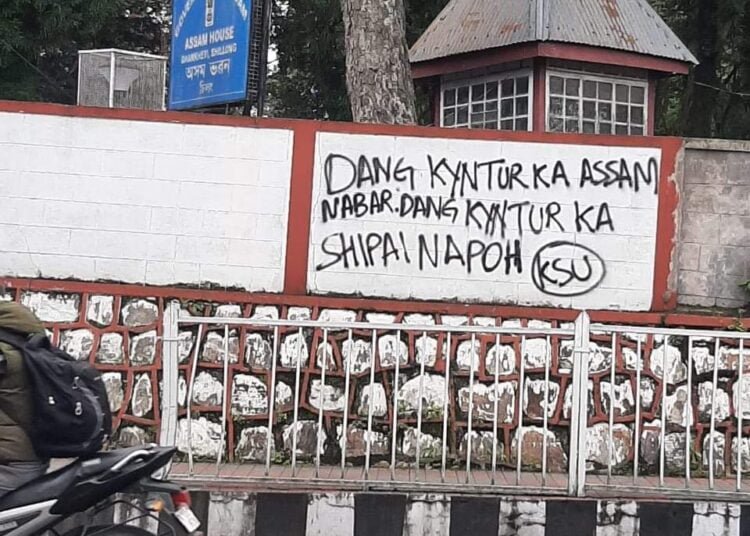 ASSAM HOUSE
DHANKHETI, SHILLONG
অসম ভৱন
DANG KYNTUR KA ASSAM
NABAR. DANG KYNTUR KA
SHIPAI NAPOH KSU